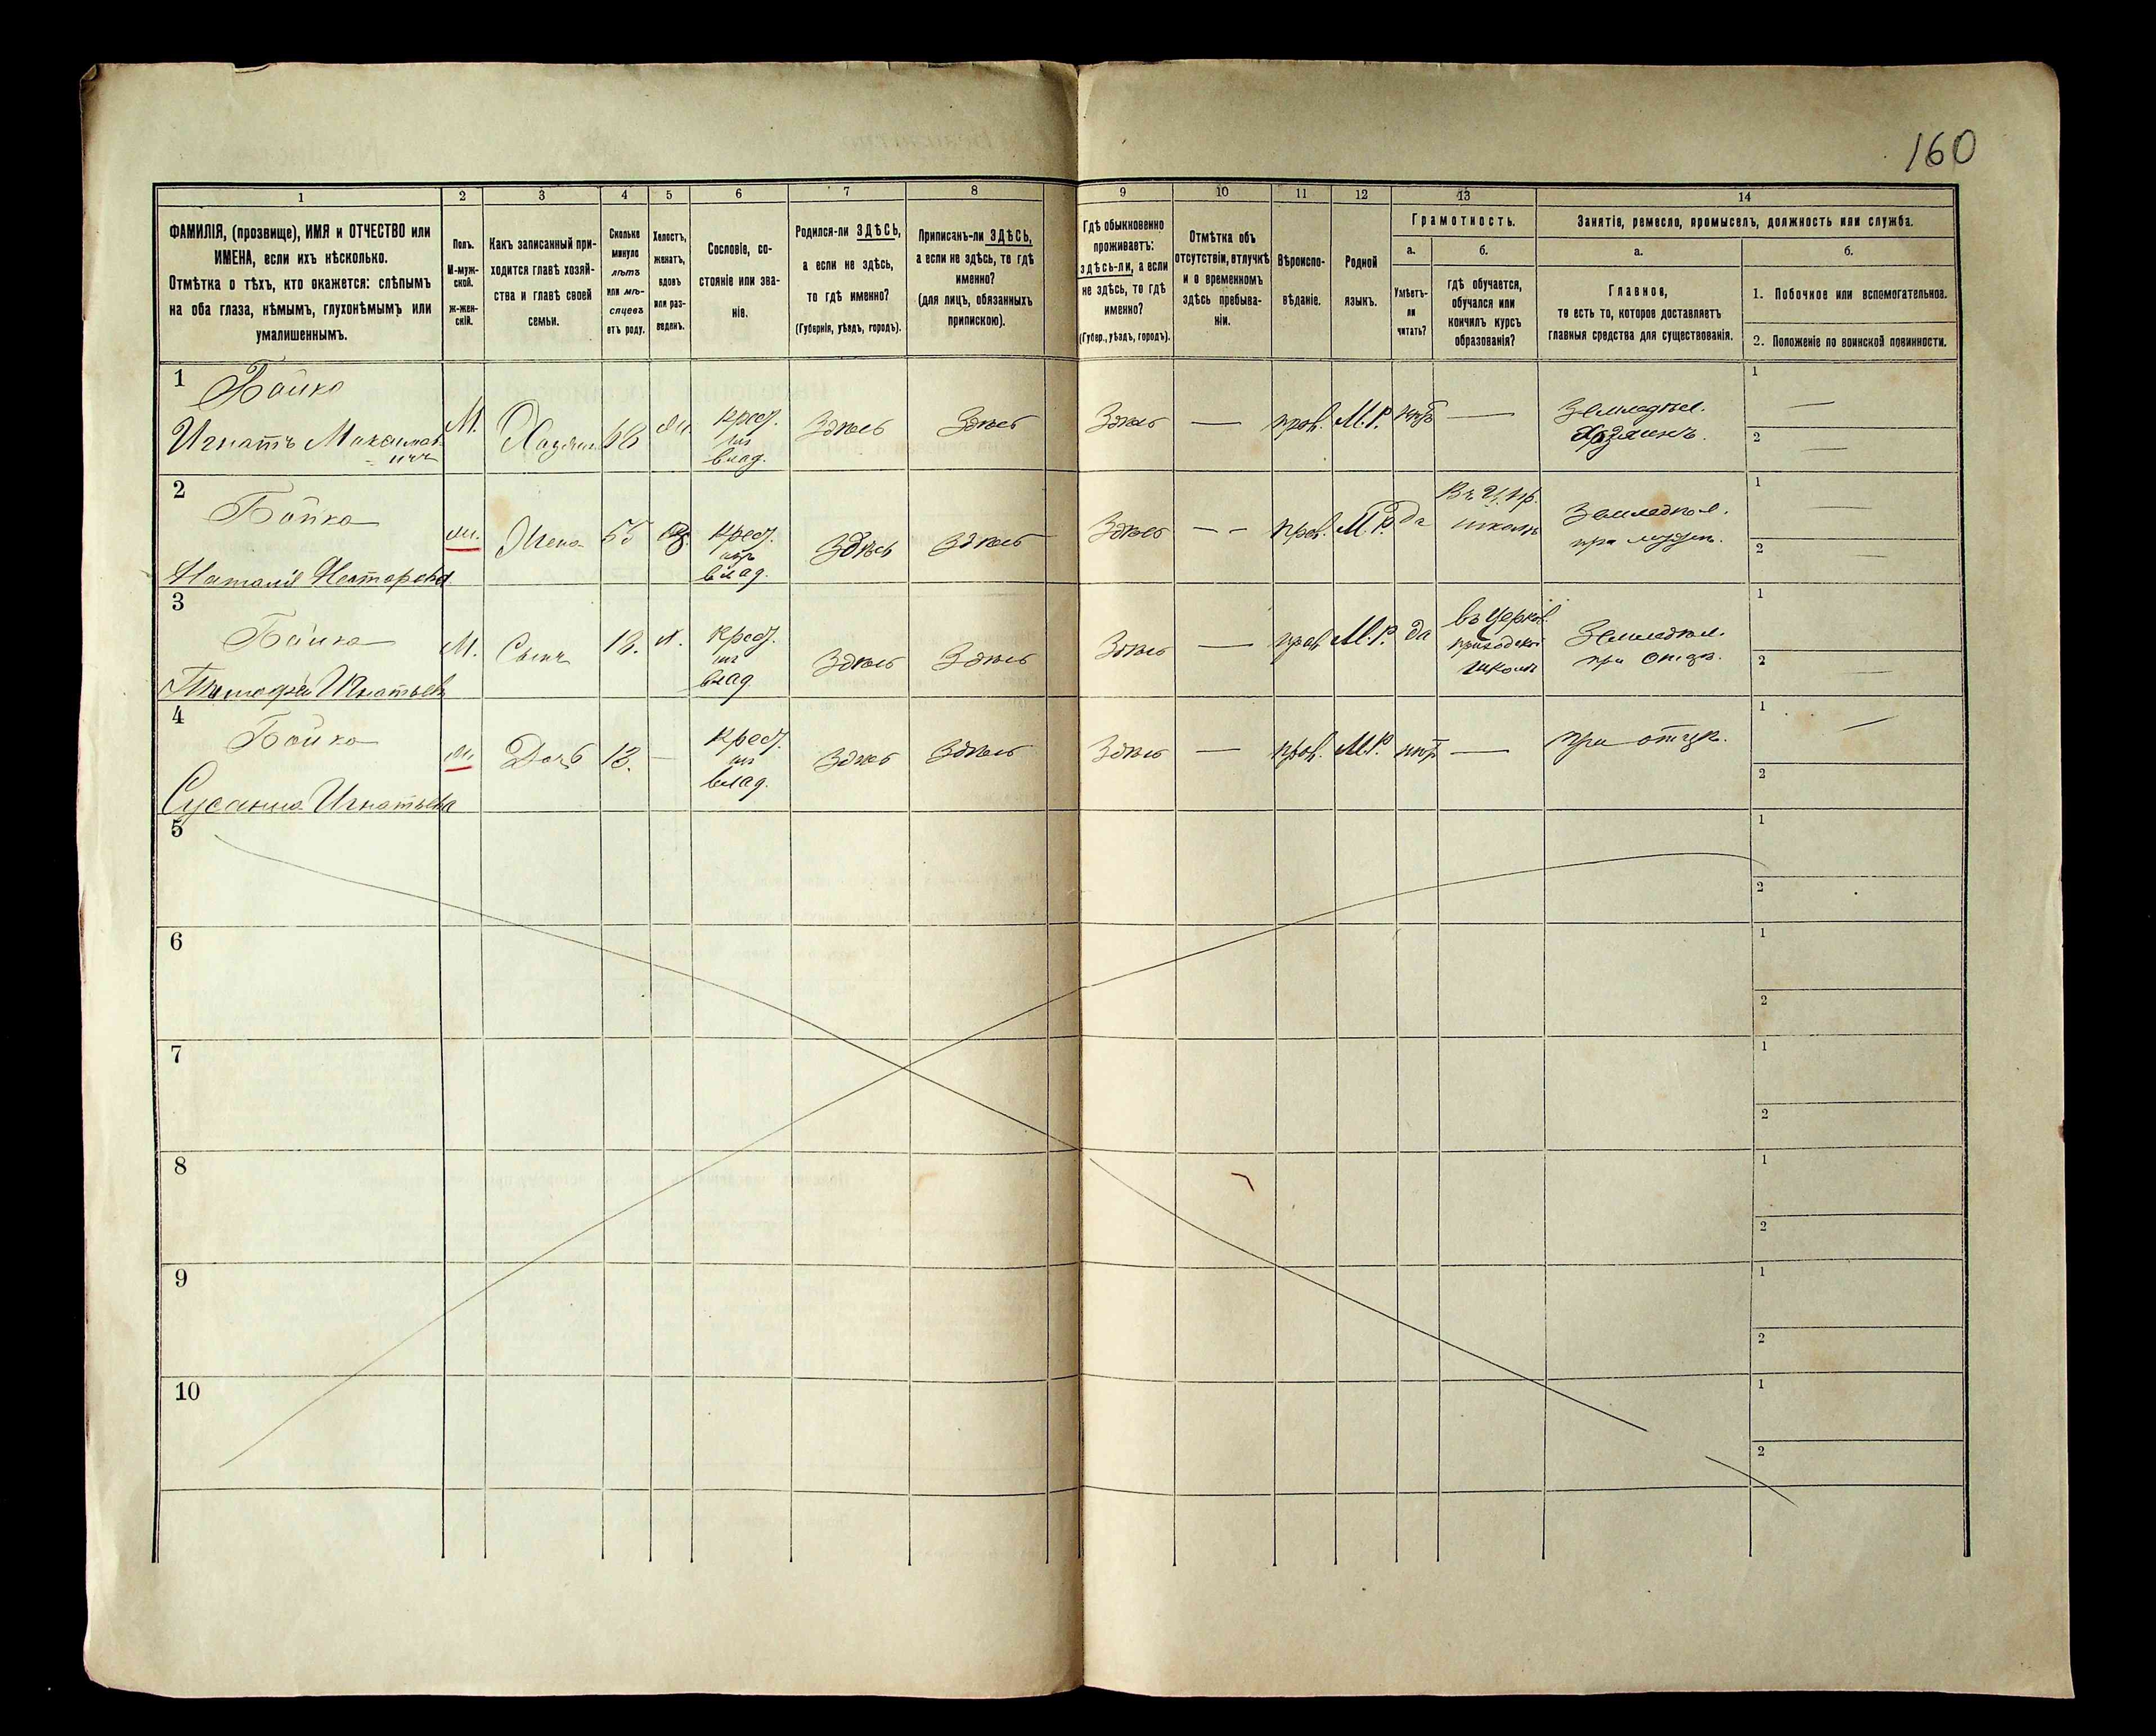 160
1 2 3 4 5 6 7 8 9 10 11 12 13 14
ФАМИЛІЯ, (прозвище), ИМЯ и ОТЧЕСТВО или
ИМЕНА, если ихъ нѣсколько.
Отмѣтка о тѣхъ, кто окажется: слѣпымъ
на оба глаза, нѣмымъ, глухонѣмымъ или
умалишеннымъ.
Полъ.
М-муж-
ской.
ж-жен-
скій.
Какъ записанный при-
ходится главѣ хозяй-
ства и главѣ своей
семьи.
Сколько
минуло
лѣтъ
или мѣ-
сяцевъ
отъ роду.
Холостъ,
женатъ,
вдовъ
или раз-
веденъ.
Сословіе, со-
стояніе или зва-
ніе.
Родился-ли ЗДѢСЬ,
а если не здѣсь,
то гдѣ именно?
(Губернія, уѣздъ, городъ).
Приписанъ-ли ЗДѢСЬ,
а если не здѣсь, то гдѣ
именно?
(для лицъ, обязанныхъ
припискою).
Гдѣ обыкновенно
проживаетъ:
здѣсь-ли, а если
не здѣсь, то гдѣ
именно?
(Губер., уѣздъ, городъ).
Отмѣтка объ
отсутствіи, отлучкѣ
и о временномъ
здѣсь пребыва-
ніи.
Вѣроиспо-
вѣданіе.
Родной
языкъ.
Грамотность.
а.
Умѣетъ-
ли
читать?
б.
гдѣ обучается,
обучался или
кончилъ курсъ
образованія?
Занятіе, ремесло, промыселъ, должность или служба.
а.
Главное,
то есть то, которое доставляетъ
главныя средства для существованія.
б.
1. Побочное или вспомогательное.
2. Положеніе по воинской повинности.
1 Бойко
Игнатъ Максимов-
ичъ
М.
Хозяинъ
Крест.
изъ
влад.
Здѣсь
Здѣсь
Здѣсь
—
прав.
М.Р.
нѣтъ
—
Земледѣл.
Хозяинъ.
1 —
2 —
2 Бойко
Наталія Несторовна
Жена
55
Крест.
изъ
влад.
Здѣсь
Здѣсь
Здѣсь
— —
прав.
М.Р.
да
школѣ
Земледѣл.
при мужѣ.
1 —
2 —
3 Бойко
Тимофей Игнатьевъ
М.
Сынъ
18.
х.
Крест.
изъ
влад.
Здѣсь
Здѣсь
Здѣсь
—
прав.
М.Р.
да
въ Церков.
приходской
школѣ
Земледѣл.
при отцѣ.
1
2
4 Бойко
Сусанна Игнатьева
Дочь
13.
—
Крест.
изъ
влад.
Здѣсь
Здѣсь
Здѣсь
—
прав.
М.Р.
нѣтъ
—
при отцѣ.
1 —
2
5
1
2
6
1
2
7
1
2
8
1
2
9
1
2
10
1
2